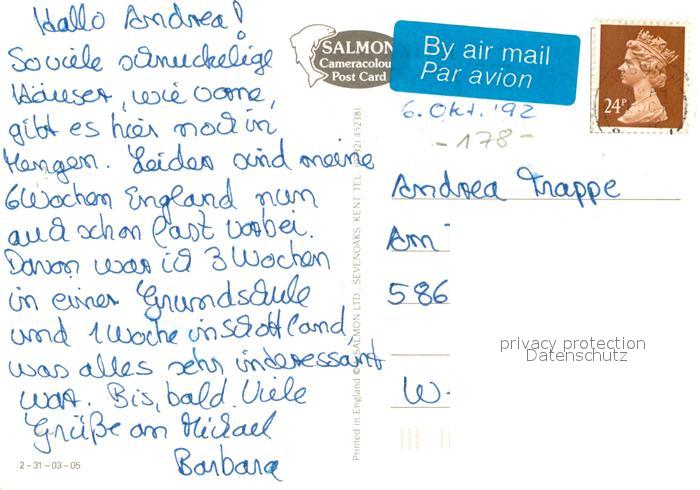 Hallo Andrea!
So viele schnuckelige
Häuser, wie vorne,
gibt es hier noch in
Mengen. Leider sind meine
6 Wochen England nun
auch schon fast vorbei.
Davon war ich 3 Wochen
in einer Grundschule
und 1 Woche in Schottland,
was alles sehr interessant
war. Bis bald. Viele
Grüße an Michael
Barbara
2-31-03-05
SALMON
Cameracolour
Post Card
Printed in England © J. SALMON LTD., SEVENOAKS, KENT. TEL. (0732) 452381
By air mail
Par avion
24P
6. Okt. '92
-178-
Andrea Trappe
Am
586
W-
privacy protection
Datenschutz